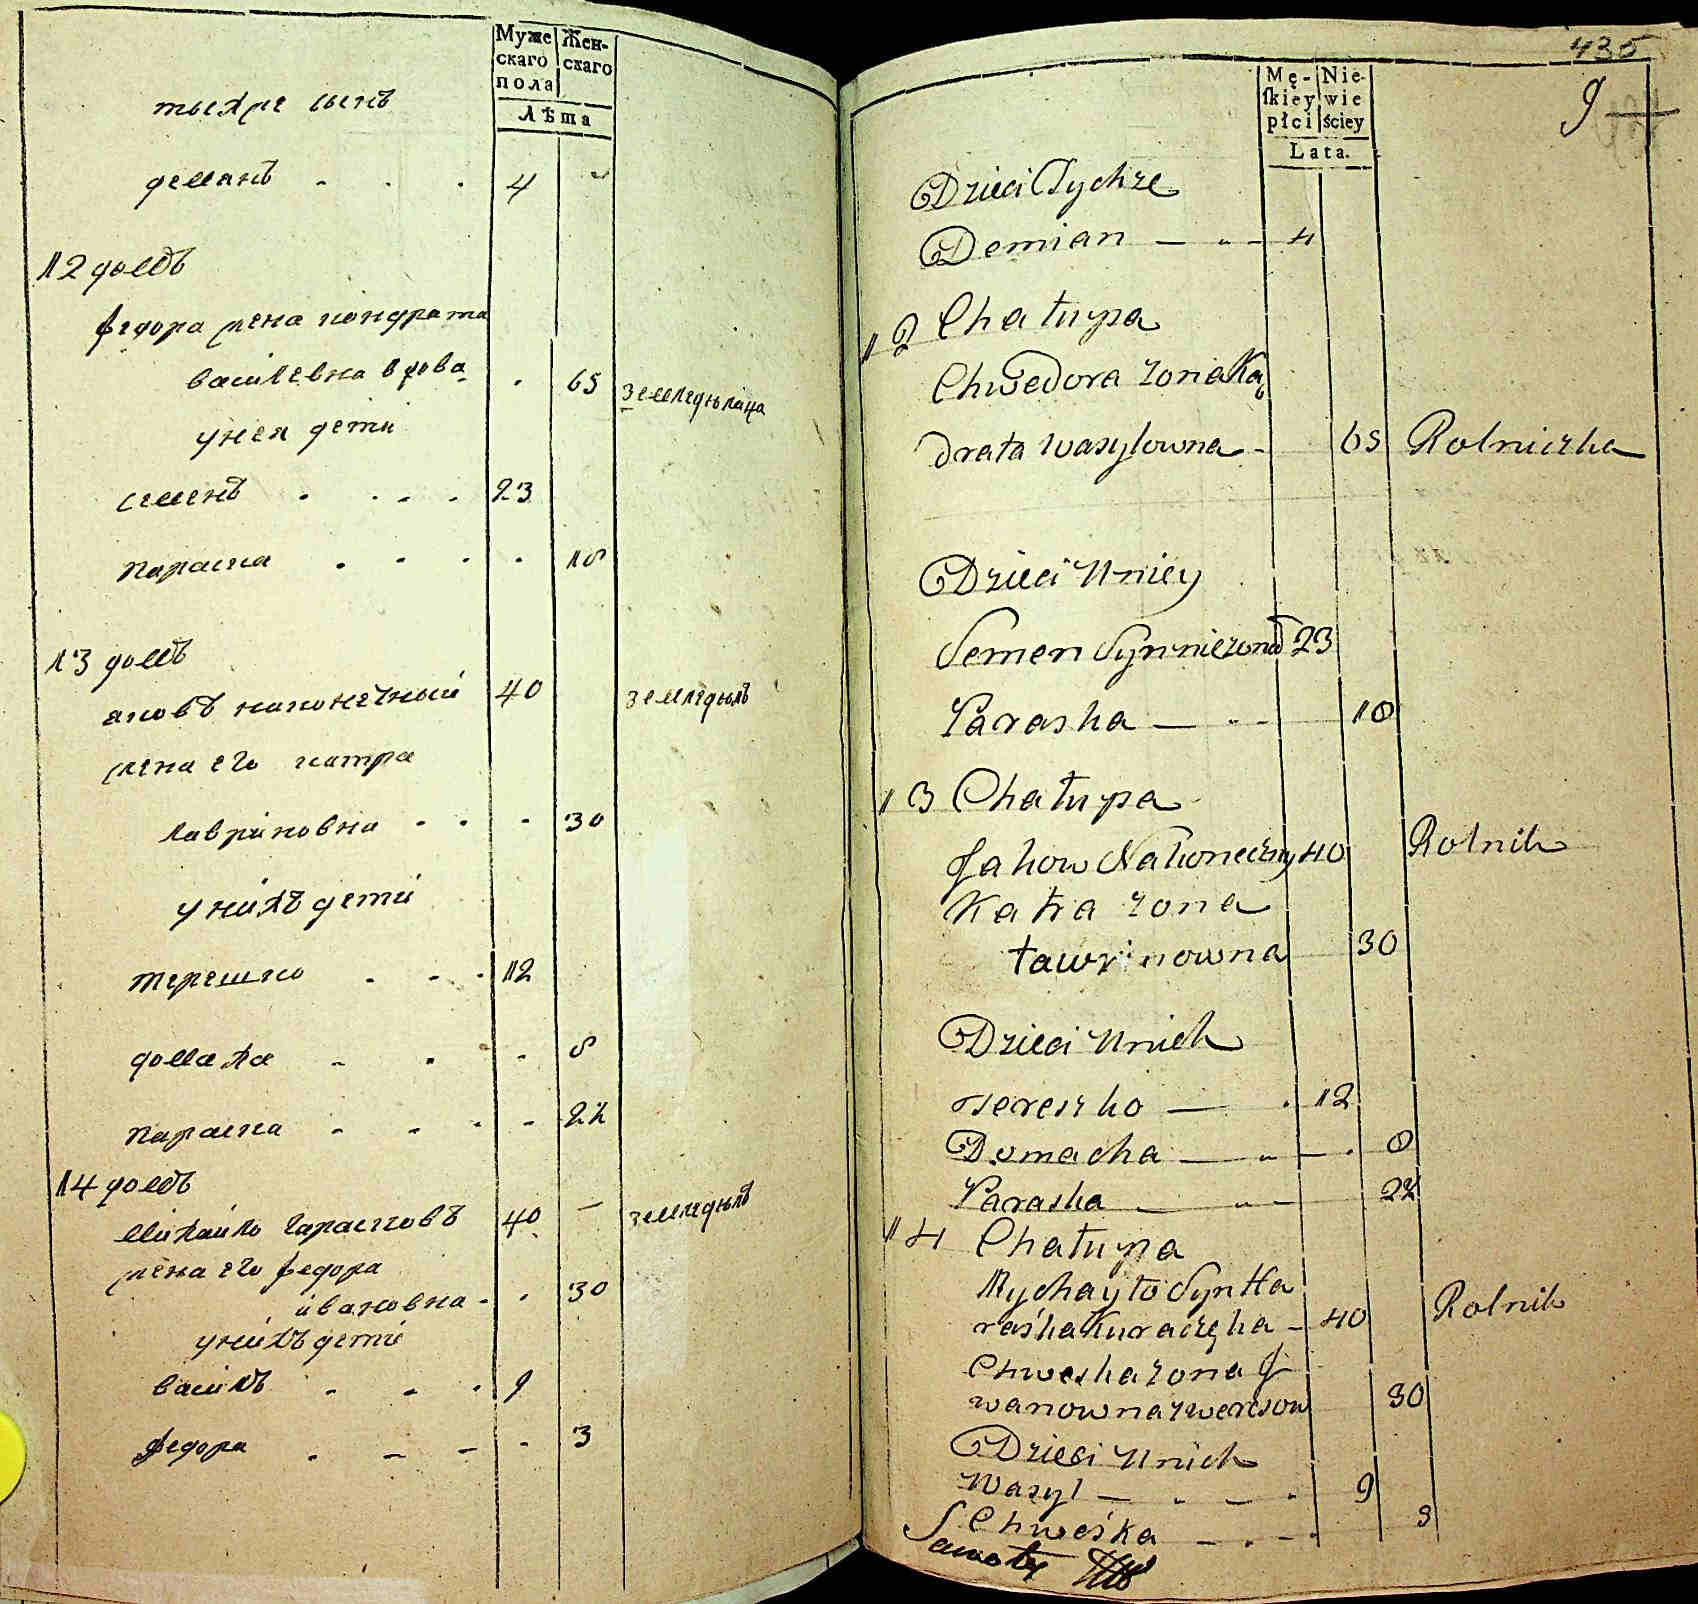 Муже
скаго
пола
Жен-
скаго
Лѣта
тыхже сынъ
демянъ . . . 4
12 домъ
федора жена кондрата
василевна вдова . 65 земледѣлица
унея дети
семенъ . . . . 23
параска . . . . 18
13 домъ
яковъ наконечный 40 земледѣлъ
жена его катря
лавриновна . . . 30
унихъ дети
терешко . . . 12
домаха . . . 8
параска . . . . 22
14 домъ
михайло гарасковъ 40 — земледѣлъ
жена его федора
ивановна - . 30
унихъ дети
василь . . . 9
федора . . . . 3
435
9
Mę-
skiey
płci
Nie-
wie
ściey
Lata.
Dzieci Tychże
Demian — „ — 4
12 Chałupa
Chwedora żona Ką
drata Wasylowna - 65 Rolniczka
Dzieci Uniey
Semen Syn nieżona 23
Paraska — „ — 18
13 Chałupa
Jakow Nakoneczny 40 Rolnik
Katra żona
Ławrinowna 30
Dzieci Unich
Tereszko — . 12
Domacha — „ — . 8
Paraska — „ — 22
14 Chałupa
Mychayło Syn Ha
raśka — 40 Rolnik
Chweska żona J
wanowna 30
Dzieci Unich
Wasyl — „ — . 9
Chweśka — . — . 3